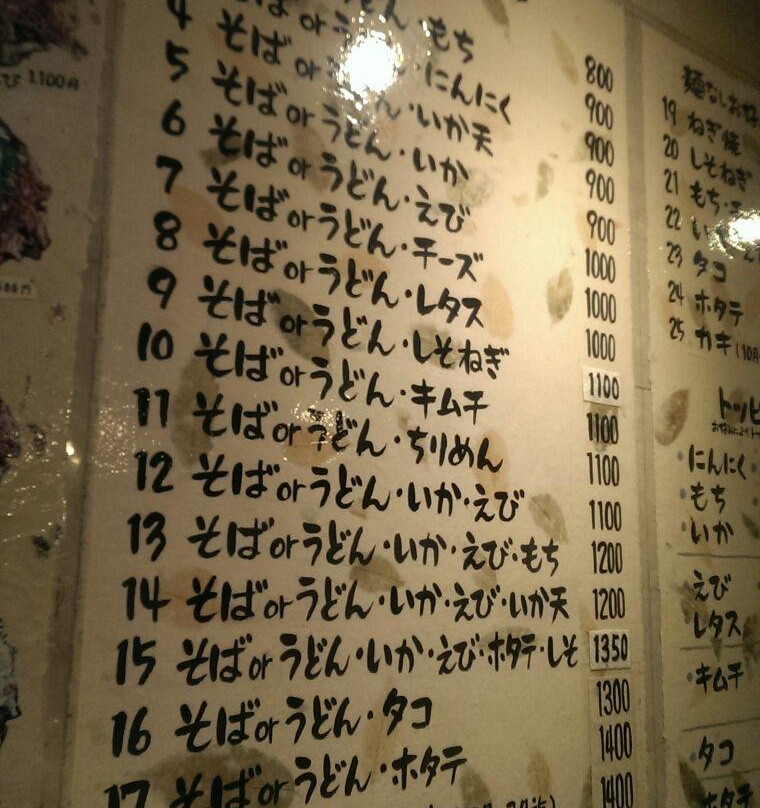 び 1100円
うどん・もち
にんにく
4 そば or うどん・いか天
5 そば or うどん・いか
6 そば or うどん・えび
7 そば or うどん・チーズ
8 そば or うどん・レタス
9 そば or うどん・しそねぎ
10 そば or うどん・キムチ
11 そば or うどん・ちりめん
12 そば or うどん・いか・えび
13 そば or うどん・いか・えび・もち
14 そば or うどん・いか・えび・いか天
15 そば or うどん・いか・えび・ホタテ・しそ
16 そば or うどん・タコ
17 そば or うどん・ホタテ
800
900
900
900
900
1000
1000
1000
1100
1100
1100
1100
1200
1200
1350
1300
1400
1400
麺なしお好
19 ねぎ焼
20 しそねぎ
21 もち・
22 い
23 タコ
24 ホタテ
25 カキ(10月
トッピ
・にんにく
・もち
・いか
・えび
レタス
・キムチ
・タコ
・ホタテ